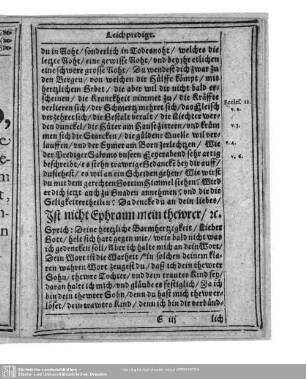 Leichpredigt.
du in Noht / sonderlich in Todesnoht / welches die
letzte Noht / eine gewisse Noht / vnd bey ihr etlichen
eine schwere grosse Noht / Du wendest dich zwar zu
den Bergen / von welchen die Hülffe kömpt / mit
hertzlichem Gebet / die aber wil dir nicht bald er-
scheinen / die Kranckheit nimmet zu / die Kräffte
verlieren sich / der Schmertz mehret sich / das Fleisch
verzehret sich / die Gestalt veralt / die Liechter wer-
den dunckel / die Hüter im Hause zittern / vnd krüm-
men sich die Starcken / die güldene Quelle wil ver-
lauffen / vnd der Eymer am Born zerlechtzen / Wie
der Prediger Salomo vnsern Feyerabend sehr artig
beschreibet / es stossen trawrige Gedancken bey dir auff /
du siehest / es wil an ein Scheiden gehen / Wie wirst
du mit dem gerechten Gott im Himmel stehen / Wird
er dich jetzt auch zu Gnaden annehmen / vnd dir die
Seligkeit ertheilen / Da dencke du an dein liebes /
Ist nicht Ephraim mein thewrer / ꝛc.
Sprich: Deine hertzliche Barmhertzigkeit / lieber
Gott / helt sich hart gegen mir / weis bald nicht was
ich gedencken sol / Aber ich halte mich an dein Wort /
Dein Wort ist die Warheit / in solchem deinem kla-
ren wahren Wort zeugest du / daß ich dein thewrer
Sohn / thewre Tochter / vnd dein trautes Kind sey /
daran halte ich mich / vnd gläube es festiglich / Da ich
bin dein thewrer Sohn / denn du hast mich thewr er-
löset / dein trawtes Kind / denn ich bin dir verbünd-
E iij
lich
Eccles. 12.
v. 2.
v. 3.
v. 4.
v. 6.